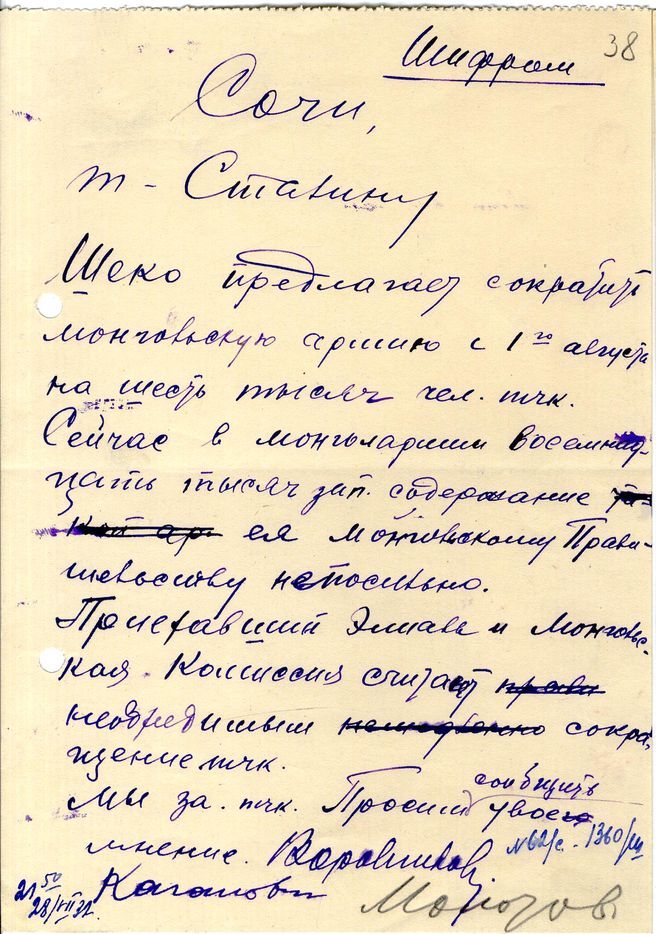 38
Шифром
Сочи,
т - Сталину
Шеко предлагает сократить
монгольскую армию с 1го августа
на шесть тысяч чел. тчк.
Сейчас в монголармии восемнад-
цать тысяч зпт. содержание та-
кой ар. ея Монгольскому Прави-
тельству непосильно.
Приехавший Элиава и Монголь-
ская Комиссия считают
необходимым немедленно сокра-
щение тчк.
сообщить
Мы за. тчк. Просим твое
мнение. Ворошилов
№62/с. 1360/ш
Каганович
21 50
28/VII 32.